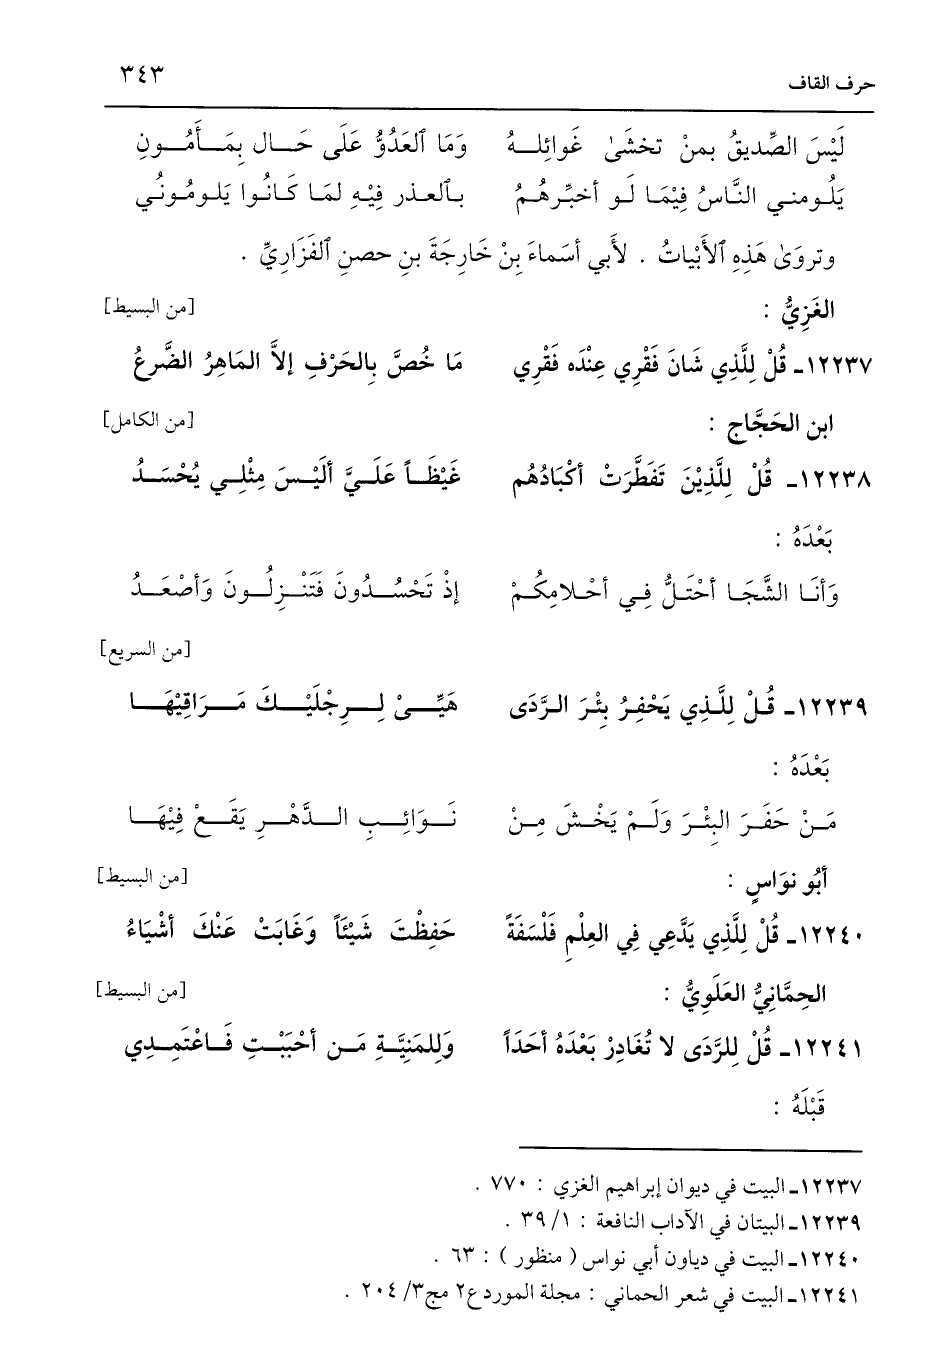 حرف القاف ٣٤٣
لَيْسَ الصِّديقُ بمنْ تخشَىٰ غَوائِلـهُ وَمَا ٱلعَدُوُّ عَلَى حَـال بِمَـأمُـونِ
يَلُـومنـي النَّـاسُ فِيْمَـا لَـو أخبِّـرهُـم بـٱلعـذر فِيْهِ لمَـا كَـانُـوا يَلـومُـوني
وتروَىٰ هَذِهِ ٱلأَبْيَاتُ . لأَبي أسَماءَ بِنْ خَارِجَةَ بنِ حصنِ ٱلفَزَارِيِّ .
الغَزِيُّ : [من البسيط]
١٢٢٣٧ـ قُلْ لِلَّذِي شَانَ فَقْرِي عِنْدَه فَقْرِي مَا خُصَّ بِالحَرْفِ إلاَّ المَاهِرُ الضَّرعُ
ابن الحَجَّاجِ : [من الكامل]
١٢٢٣٨ـ قُلْ لِلَّذِيْنَ تَفَطَّرَتْ أكْبَادُهُم غَيْظَـاً عَلَـيَّ ألَيْـسَ مِثْلِـي يُحْسَـدُ
بَعْدَهُ :
وَأنَـا الشَّجَـا أحْتَـلُّ فِـي أحْـلامِكُـمْ إذْ تَحْسُـدُونَ فَتَنْـزِلُـونَ وَأصْعَـدُ
[من السريع]
١٢٢٣٩ـ قُـلْ لِلَّـذِي يَحْفِـرُ بِئْـرَ الـرَّدَى هَيِّـئْ لِـرِجْلَيْـكَ مَـرَاقِيْهَـا
بَعْدَهُ :
مَـنْ حَفَـرَ البِئْـرَ وَلَـمْ يَخْـشَ مِـنْ نَـوَائِـبِ الـدَّهْـرِ يَقَـعْ فِيْهَـا
أبُو نوَاسٍ : [من البسيط]
١٢٢٤٠ـ قُلْ لِلَّذِي يَدَّعِي فِي العِلْمِ فَلْسَفَةً حَفِظْتَ شَيْئَاً وَغَابَتْ عَنْكَ أشْيَاءُ
الحِمَّانِيُّ العَلَوِيُّ : [من البسيط]
١٢٢٤١ـ قُلْ لِلرَّدَى لا تُغَادِرْ بَعْدَهُ أحَدَاً وَلِلمَنِيَّـةِ مَـن أحْبَبْـتِ فَـاعْتَمِـدِي
قَبْلَهُ :
١٢٢٣٧ـ البيت في ديوان إبراهيم الغزي : ٧٧٠ .
١٢٢٣٩ـ البيتان في الآداب النافعة : ١/ ٣٩ .
١٢٢٤٠ـ البيت في دياون أبي نواس ( منظور ) : ٦٣ .
١٢٢٤١ـ البيت في شعر الحماني : مجلة المورد ع٢ مج٣/ ٢٠٤ .